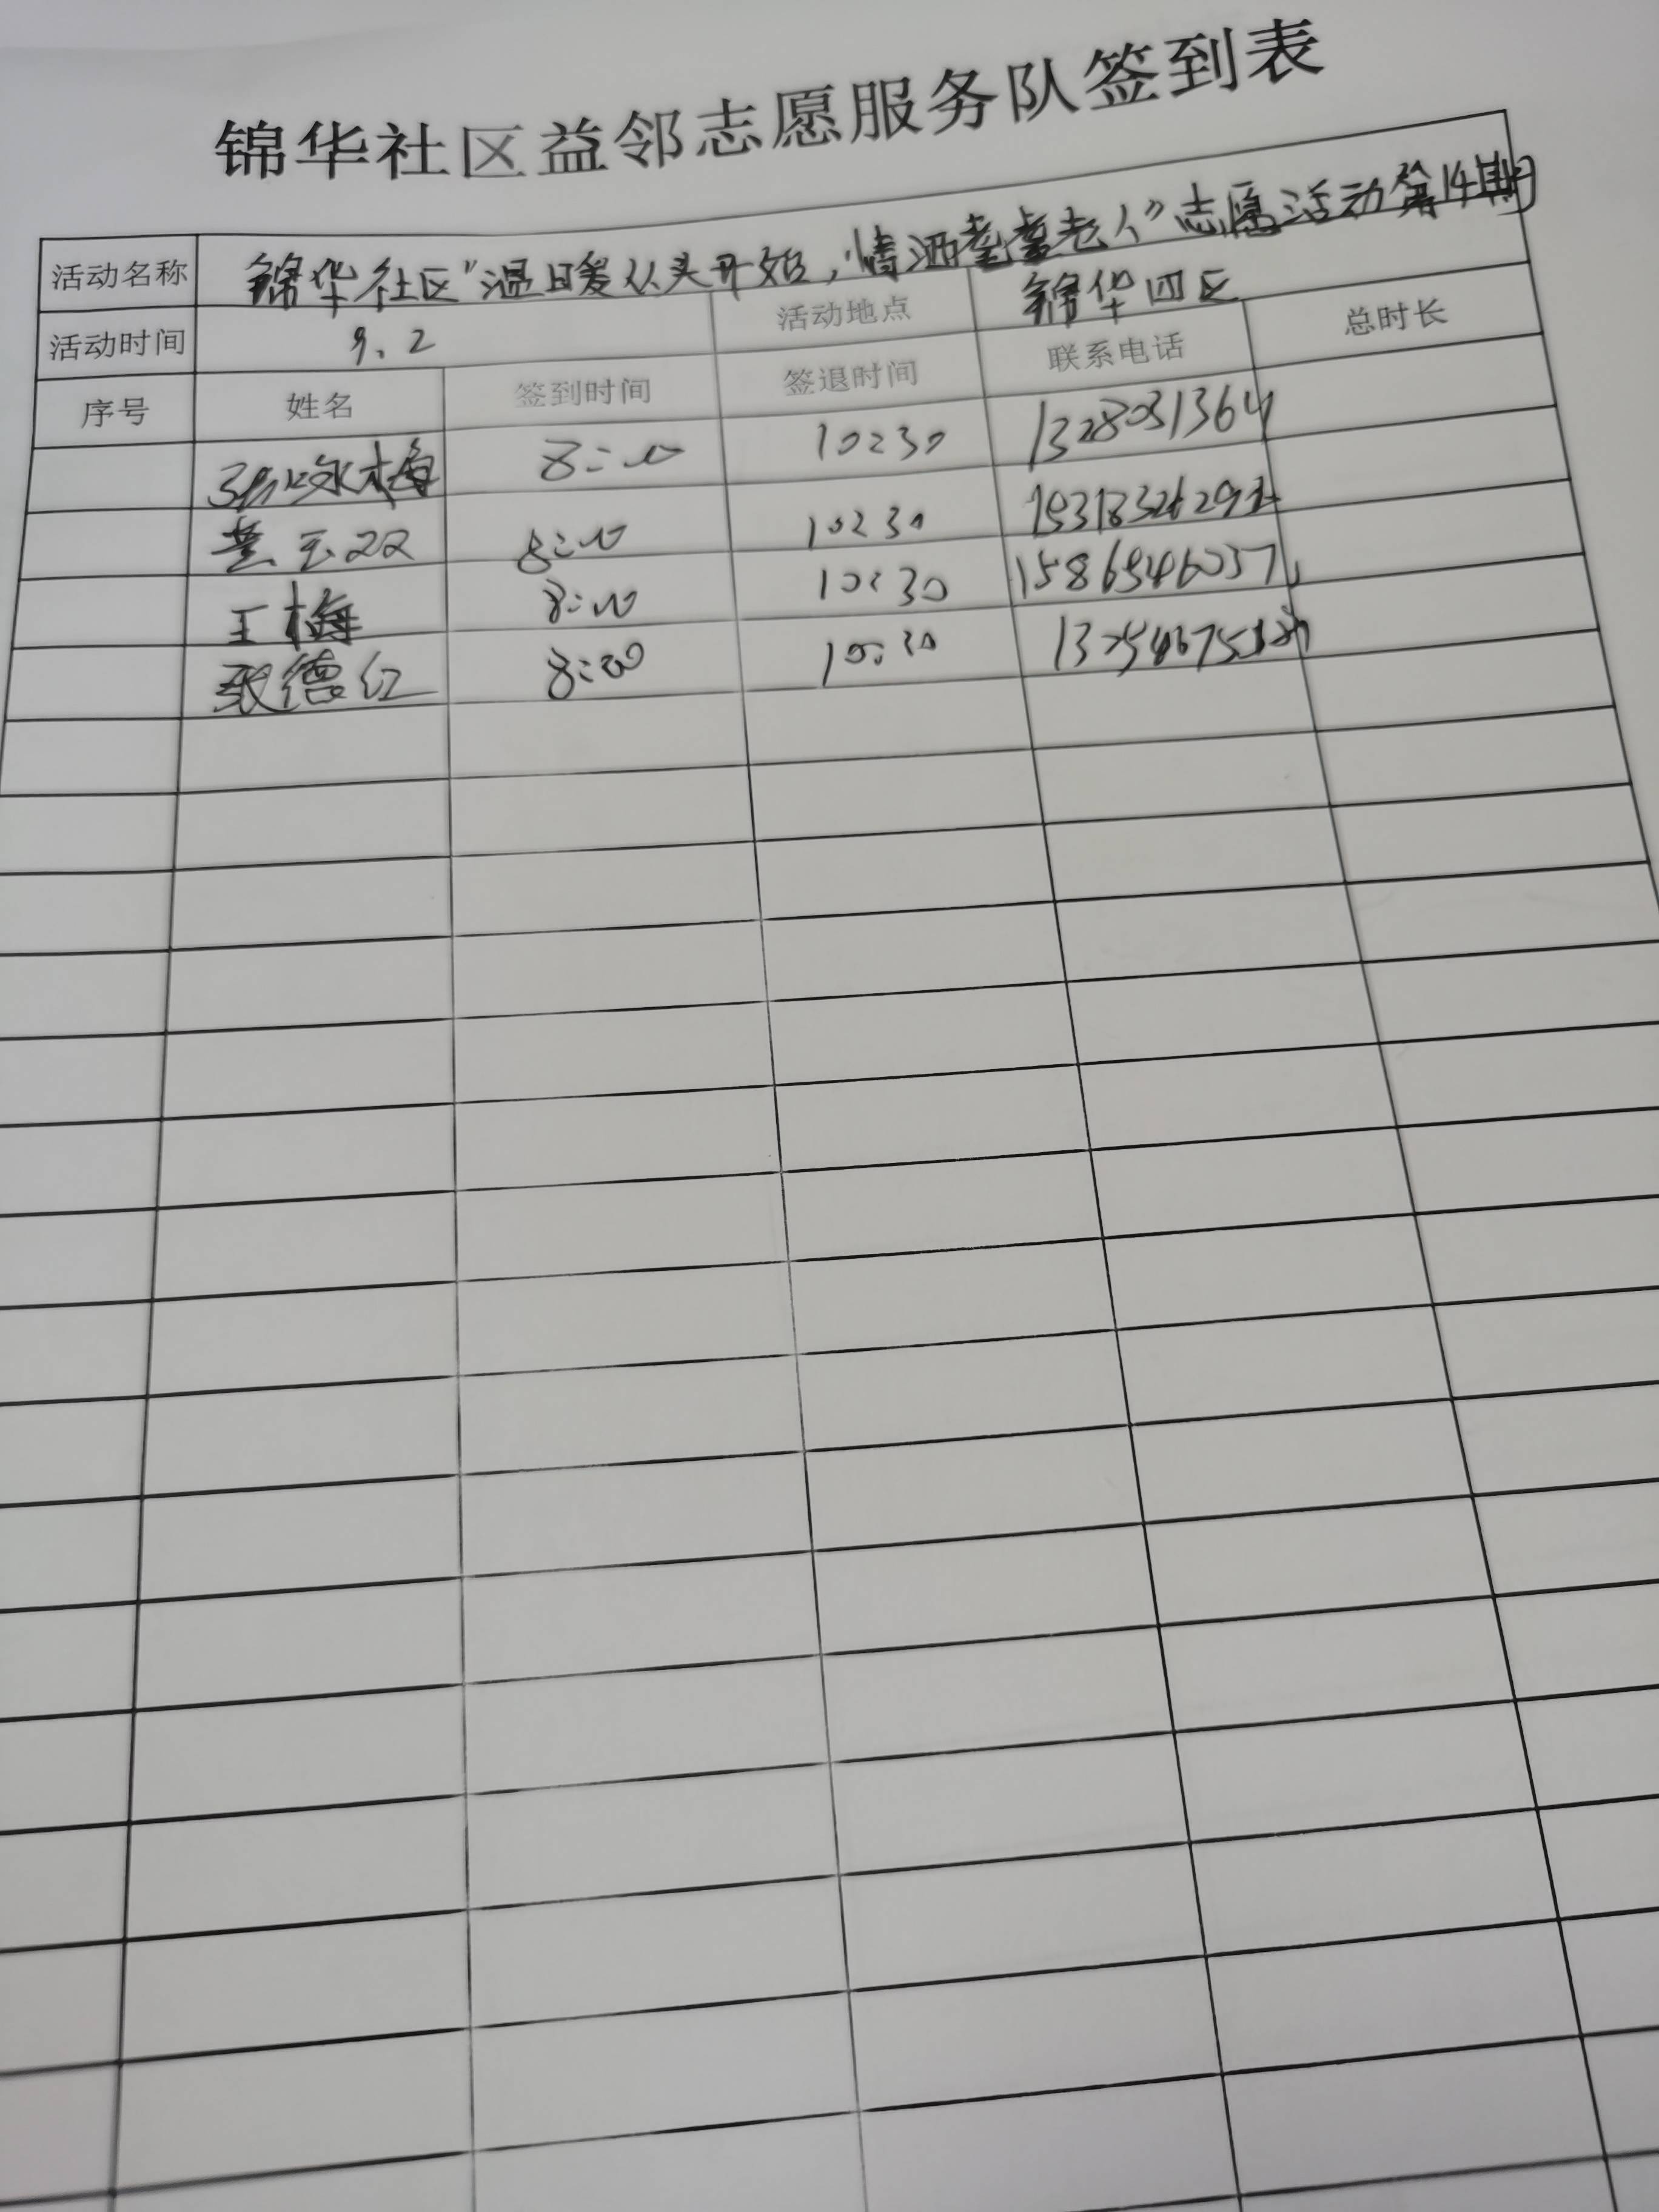 锦华社区益邻志愿服务队签到表
活动名称 锦华社区"温暖从头开始,情洒耄耋老人"志愿活动第14期
活动时间 9.2 活动地点 锦华四区
序号 姓名 签到时间 签退时间 联系电话 总时长
8:00 10:30 1328031364
8:00 10:30
王梅 8:00 10:30 15865546037
张德红 8:00 10:30